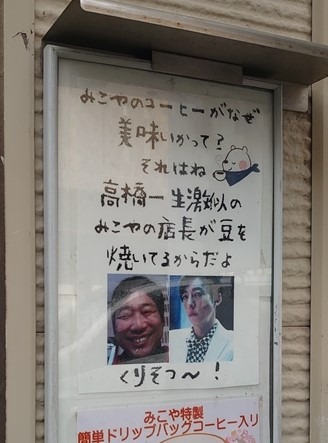 みこやのコーヒーがなぜ
美味いかって?
それはね
高橋一生激似の
みこやの店長が豆を
焼いてるからだよ
くりそつ〜!
みこや特製
簡単ドリップバッグコーヒー入り